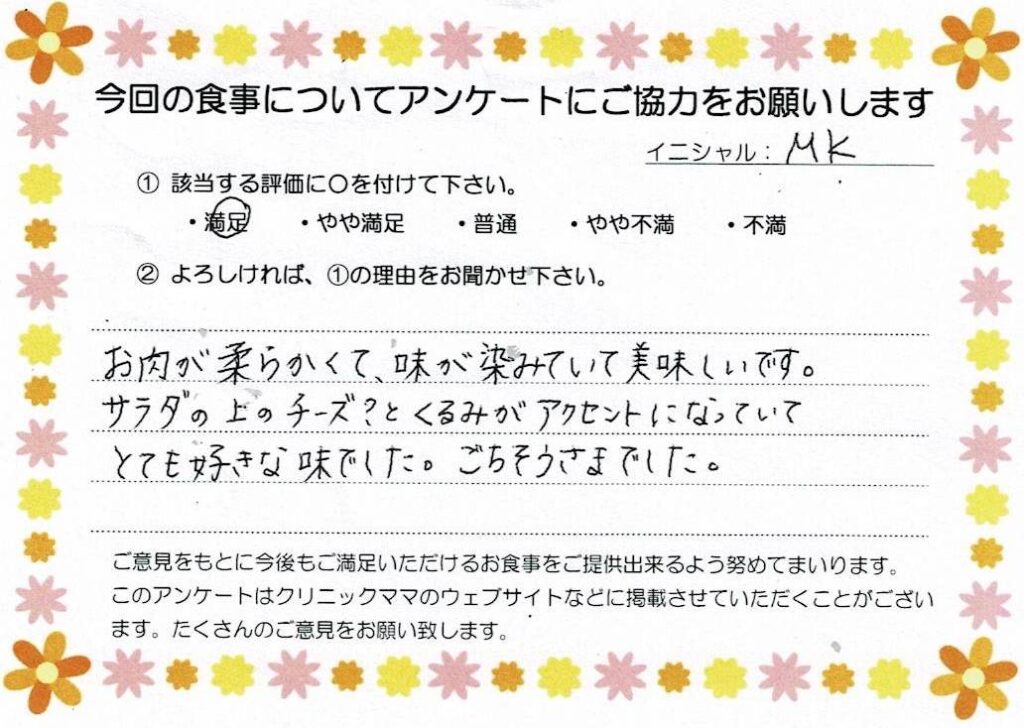 今回の食事についてアンケートにご協力をお願いします
イニシャル：MK
① 該当する評価に〇を付けて下さい。
・満足 ・やや満足 ・普通 ・やや不満 ・不満
② よろしければ、①の理由をお聞かせ下さい。
お肉が柔らかくて、味が染みていて美味しいです。
サラダの上のチーズ？とくるみがアクセントになっていて
とても好きな味でした。ごちそうさまでした。
ご意見をもとに今後もご満足いただけるお食事をご提供出来るよう努めてまいります。
このアンケートはクリニックママのウェブサイトなどに掲載させていただくことがござい
ます。たくさんのご意見をお願い致します。